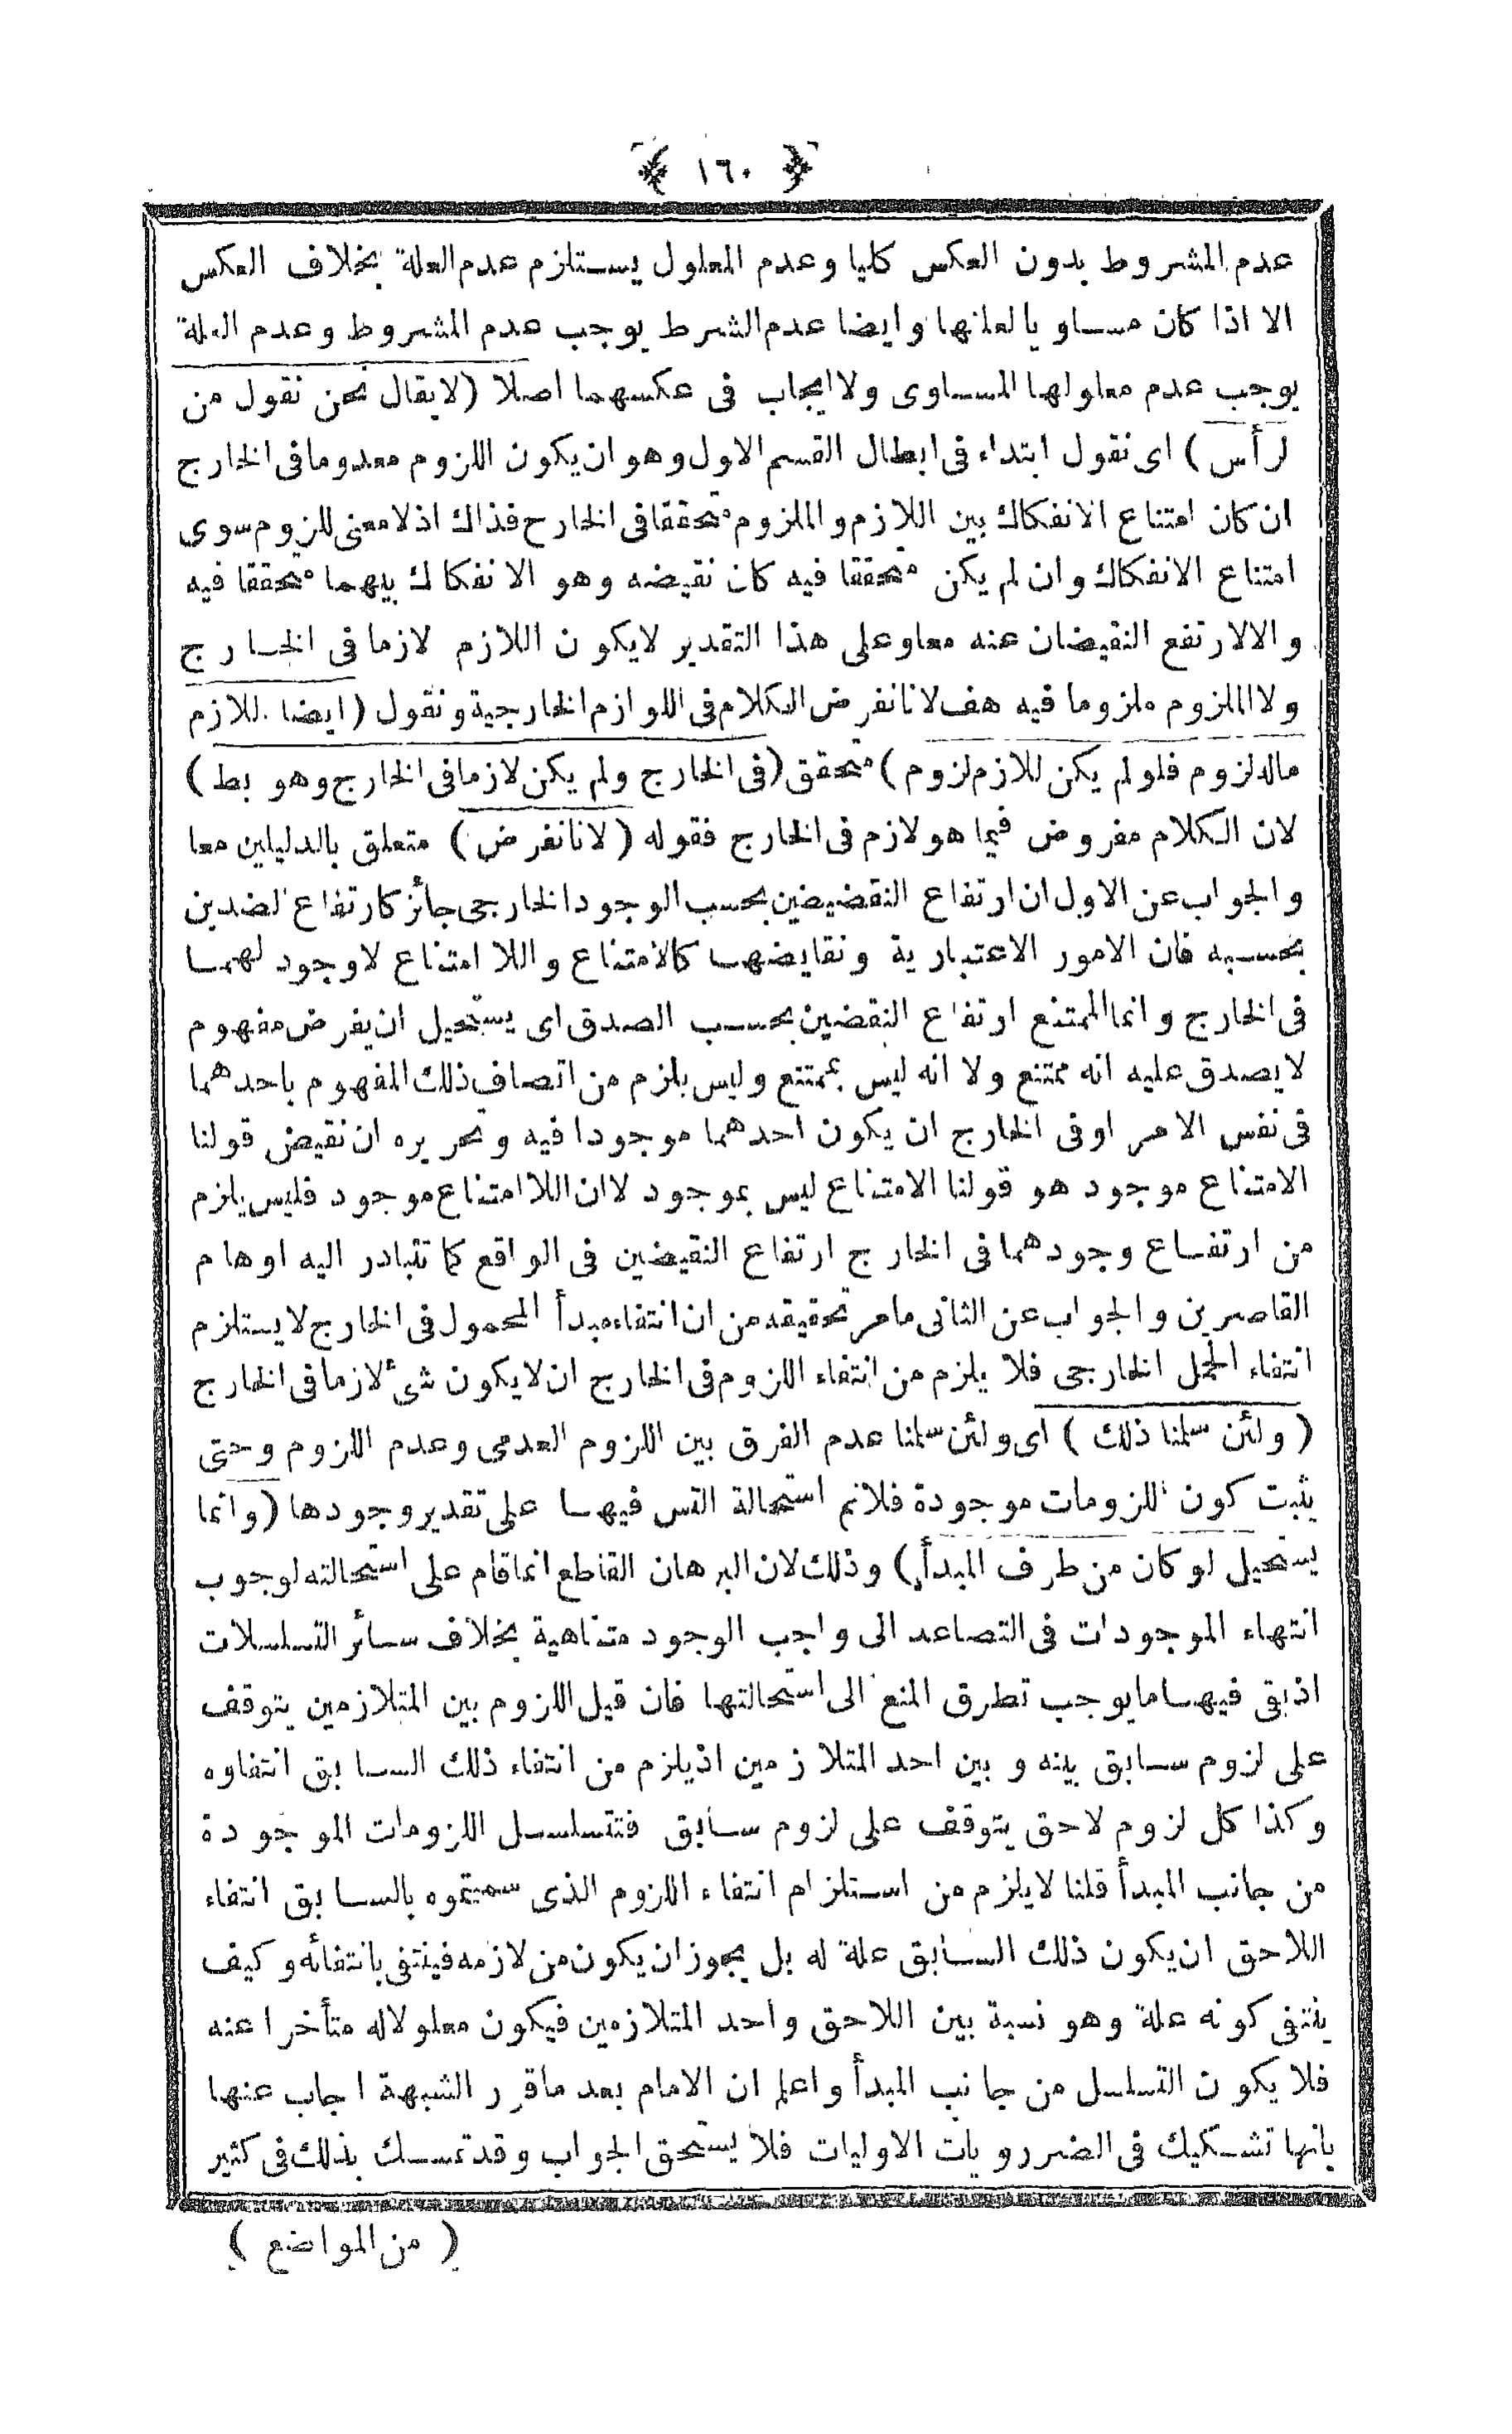 ﴿ ١٦٠ ﴾
عدم المشروط بدون العكس كليا وعدم المعلول يستلزم عدم العلة بخلاف العكس
الا اذا كان مساويا لعلتها وايضا عدم الشرط يوجب عدم المشروط وعدم العلة
يوجب عدم معلولها المساوى ولا ايجاب فى عكسهما اصلا (لا يقال نحن نقول من
لرأس) اى نقول ابتداء فى ابطال القسم الاول وهو ان يكون اللزوم معدوما فى الخارج
ان كان امتناع الانفكاك بين اللازم والملزوم متحققا فى الخارج فذاك اذ لا معنى للزوم سوى
امتناع الانفكاك وان لم يكن متحققا فيه كان نقيضه وهو الانفكاك بينهما متحققا فيه
والا لارتفع النقيضان عنه معا وعلى هذا التقدير لا يكون اللازم لازما فى الخارج
ولا الملزوم ملزوما فيه هف لانا نفرض الكلام فى اللوازم الخارجية ونقول (ايضا اللازم
ماله لزوم فلو لم يكن للازم لزوم) متحقق (فى الخارج ولم يكن لازما فى الخارج وهو بط)
لان الكلام مفروض فيما هو لازم فى الخارج فقوله (لانا نفرض) متعلق بالدليلين معا
والجواب عن الاول ان ارتفاع النقضيضين بحسب الوجود الخارجى جائز كارتفاع لضدين
بحسبه فان الامور الاعتبارية ونقايضها كالامتناع واللا امتناع لا وجود لهما
فى الخارج وانما الممتنع ارتفاع النقضين بحسب الصدق اى يستحيل ان يفرض مفهوم
لا يصدق عليه انه ممتنع ولا انه ليس بممتنع وليس يلزم من اتصاف ذلك المفهوم باحدهما
فى نفس الامر او فى الخارج ان يكون احدهما موجودا فيه وتحريره ان نقيض قولنا
الامتناع موجود هو قولنا الامتناع ليس بموجود لا ان اللا امتناع موجود فليس يلزم
من ارتفاع وجودهما فى الخارج ارتفاع النقيضين فى الواقع كما تتبادر اليه اوهام
القاصرين والجواب عن الثانى مامر تحقيقه من ان انتفاء مبدأ المحمول فى الخارج لا يستلزم
انتفاء الحمل الخارجى فلا يلزم من انتفاء اللزوم فى الخارج ان لا يكون شئ لازما فى الخارج
(ولئن سلمنا ذلك) اى ولئن سلمنا عدم الفرق بين اللزوم العدمى وعدم اللزوم وحتى
يثبت كون اللزومات موجودة فلانم استحالة التس فيها على تقدير وجودها (وانما
يستحيل لو كان من طرف المبدأ) وذلك لان البرهان القاطع انما قام على استحالته لوجوب
انتهاء الموجودات فى التصاعد الى واجب الوجود متناهية بخلاف سائر التسلسلات
اذ بقى فيها ما يوجب تطرق المنع الى استحالتها فان قيل اللزوم بين المتلازمين يتوقف
على لزوم سابق بينه وبين احد المتلازمين اذ يلزم من انتفاء ذلك السابق انتفاوه
وكذا كل لزوم لاحق يتوقف على لزوم سابق فتتسلسل اللزومات الموجودة
من جانب المبدأ قلنا لا يلزم من استلزام انتفاء اللزوم الذى سميتموه بالسابق انتفاء
اللاحق ان يكون ذلك السابق علة له بل يجوز ان يكون من لازمه فينتفى بانتفائه وكيف
ينتفى كونه علة وهو نسبة بين اللاحق واحد المتلازمين فيكون معلولا له متأخرا عنه
فلا يكون التسلسل من جانب المبدأ واعلم ان الامام بعد ماقرر الشبهة اجاب عنها
بانها تشكيك فى الضرروبات الاوليات فلا يستحق الجواب وقد تمسك بذلك فى كثير
(من المواضع)